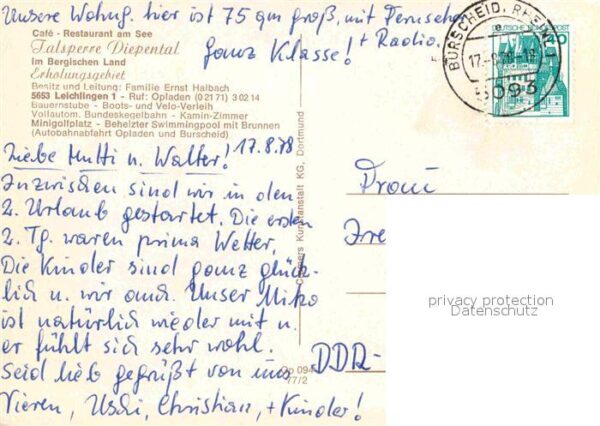 Unsere Wohng. hier ist 75 qm groß, mit Fernseher
+ Radio.
ganz Klasse!
Café - Restaurant am See
Talsperre Diepental
im Bergischen Land
Erholungsgebiet
Besitz und Leitung: Familie Ernst Halbach
5653 Leichlingen 1 - Ruf: Opladen (0 21 71) 3 02 14
Bauernstube - Boots- und Velo-Verleih
Vollautom. Bundeskegelbahn - Kamin-Zimmer
Minigolfplatz - Beheizter Swimmingpool mit Brunnen
(Autobahnabfahrt Opladen und Burscheid)
17.8.78
Liebe Mutti u. Walter!
Inzwischen sind wir in den
2. Urlaub gestartet. Die ersten
2. Tg. waren prima Wetter,
Die Kinder sind ganz glück-
lich u. wir auch. Unser Mitko
ist natürlich wieder mit u.
er fühlt sich sehr wohl.
Seid lieb gegrüßt von uns
Vieren, Uschi, Christian, + Kinder!
Kunstanstalt KG, Dortmund
094
77/2
BURSCHEID, RHEINL
5093
DEUTSCHE BUNDESPOST
Frau
Ire
DDR-
privacy protection
Datenschutz